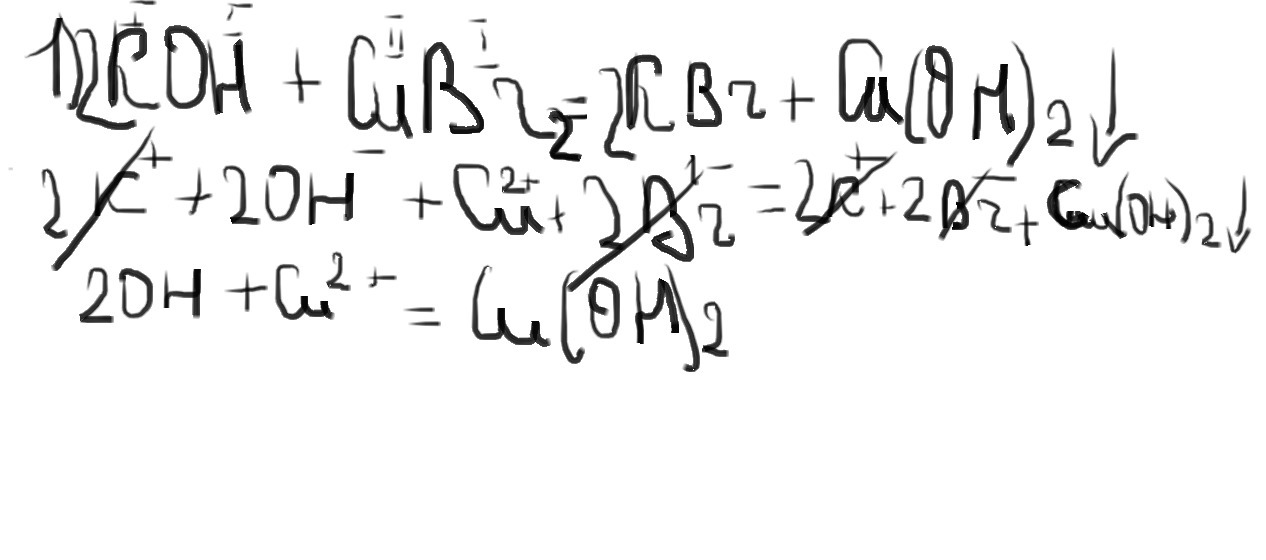 1) 2KOH + CuBr₂ = 2KBr + Cu(OH)₂↓
2K⁺ + 2OH⁻ + Cu²⁺ + 2Br⁻ = 2K⁺ + 2Br⁻ + Cu(OH)₂↓
2OH + Cu²⁺ = Cu(OH)₂